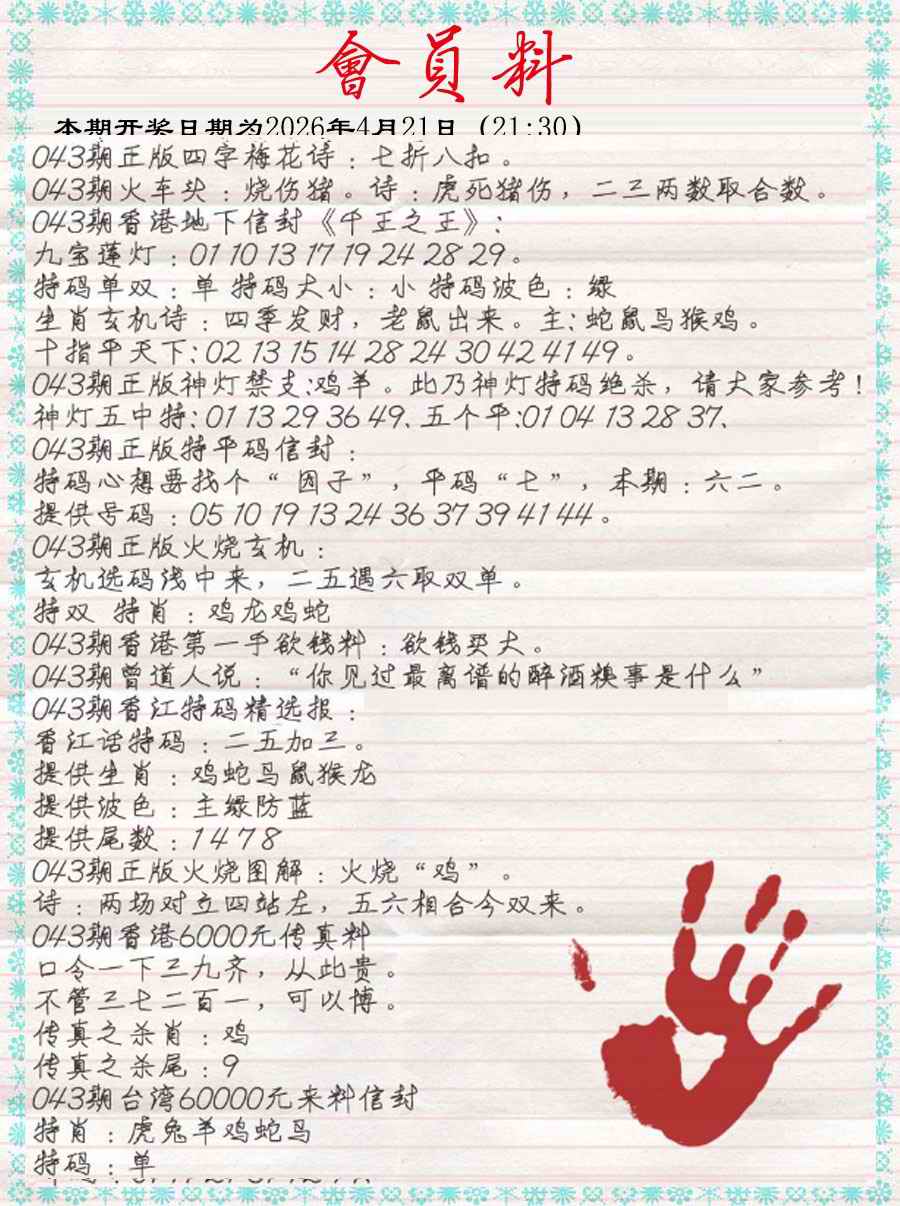 會員料
本期开奖日期为2026年4月21日（21:30）
043期正版四字梅花诗：七折八扣。
043期火车头：烧伤猪。诗：虎死猪伤，二三两数取合数。
043期香港地下信封《千王之王》：
九宝莲灯：01 10 13 17 19 24 28 29。
特码单双：单 特码大小：小 特码波色：绿
生肖玄机诗：四季发财，老鼠出来。主：蛇鼠马猴鸡。
十指平天下：02 13 15 14 28 24 30 42 41 49。
043期正版神灯禁支：鸡羊。此乃神灯特码绝杀，请大家参考！
神灯五中特：01 13 29 36 49、五个平：01 04 13 28 37、
043期正版特平码信封：
特码心想要找个“因子”，平码“七”，本期：六二。
提供号码：05 10 19 13 24 36 37 39 41 44。
043期正版火烧玄机：
玄机选码浅中来，二五遇六取双单。
特双 特肖：鸡龙鸡蛇
043期香港第一手欲钱料：欲钱买大。
043期曾道人说：“你见过最离谱的醉酒糗事是什么”
043期香江特码精选报：
香江话特码：二五加三。
提供生肖：鸡蛇马鼠猴龙
提供波色：主绿防蓝
提供尾数：1 4 7 8
043期正版火烧图解：火烧“鸡”。
诗：两场对立四站左，五六相合今双来。
043期香港6000元传真料
口令一下三九齐，从此贵。
不管三七二百一，可以博。
传真之杀肖：鸡
传真之杀尾：9
043期台湾60000元来料信封
特肖：虎兔羊鸡蛇马
特码：单